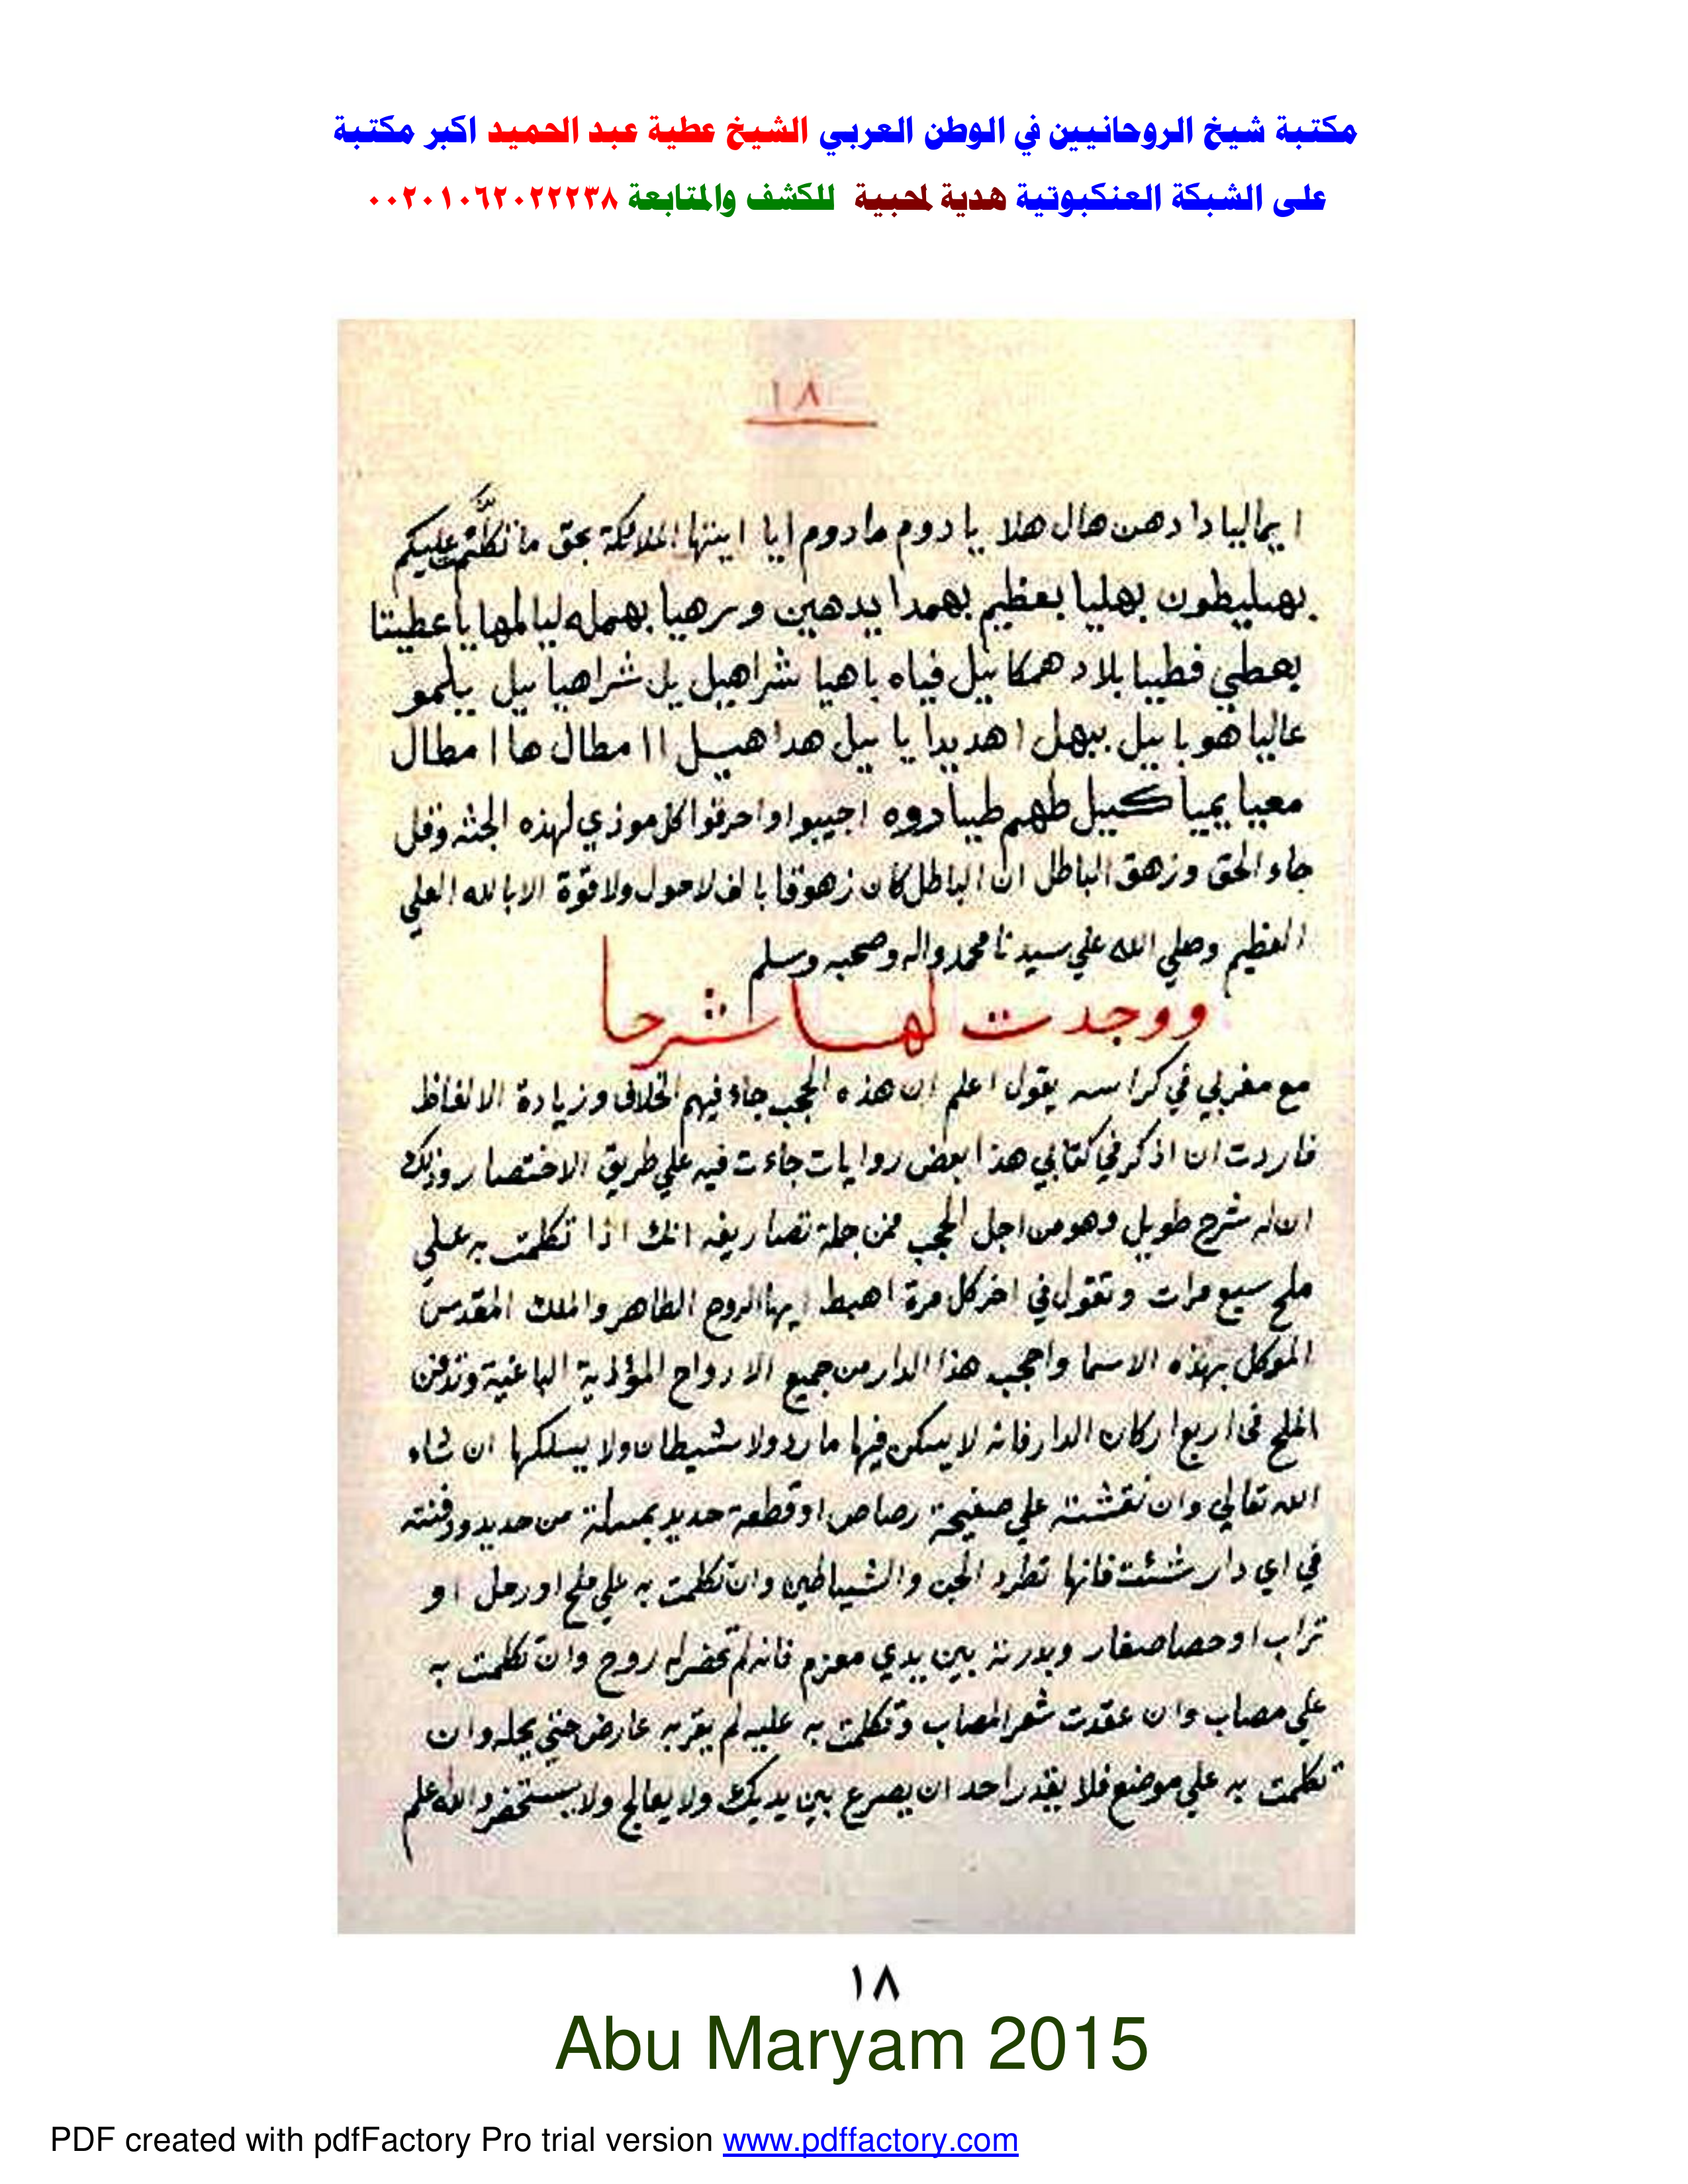 مكتبة شيخ الروحانيين في الوطن العربي الشيخ عطية عبد الحميد اكبر مكتبة
على الشبكة العنكبوتية هدية لمحبية للكشف والمتابعة ٠٠٢٠١٠٦٢٠٢٢٢٣٨
١٨
ايماليا دا دهن هال هلا يا دوم مادوم ايا ايتها الملائكة بحق ما تكلمت عليكم
بهليطون بهليا بعظيم بهمدا يدهين وبرهيا بهمله ليالمها يا عطيتا
بعطي فطيا بلاد همكائيل فياه باهيا شراهيل يل شراهيائيل يلمو
عاليا هويائيل ببهل اهديدا يائيل هداهيل اا مطال ها ا مطال
معيا يميا كييل طهم طيبادوه اجيبوا واحرقوا كل موذي لهذه الجثه وقل
جاء الحق وزهق الباطل ان الباطل كان زهوقا بالف لاحول ولا قوة الا بالله العلي
العظيم وصلي الله علي سيدنا محمد واله وصحبه وسلم
ووجدت لها شرحا
مع مغربي في كراسه يقول اعلم ان هذه الحجب جاء فيهم الخلاف وزيادة الالفاظ
فاردت ان اذكر في كتابي هذا بعض روايات جاءت فيه علي طريق الاختصار وذلك
ان له شرح طويل وهو من اجل الحجب فمن جملة تصاريفه انك اذا تكلمت به علي
ملح سبع مرات وتقول في اخر كل مرة اهبط ايها الروح الطاهر والملك المقدس
الموكل بهذه الاسما واحجب هذا الدار من جميع الارواح المؤذية الباغية وتدفن
الملح في اربع اركان الدار فانه لا يسكن فيها مارد ولا شيطان ولا يسلكها ان شاء
الله تعالي وان نقشته علي صفيحة رصاص او قطعة حديد بمسلة من حديد ودفنته
في اي دار شئت فانها تطرد الجن والشياطين وان تكلمت به علي ملح او رمل او
تراب او حصا صغار وبدرته بين يدي معزم فانه لم تحضر له روح وان تكلمت به
علي مصاب وان عقدت شعر المصاب وتكلمت به عليه لم يقربه عارض حتي يحله وان
تكلمت به علي موضع فلا يقدر احد ان يصرع بين يديك ولا يعالج ولا يستحضر والله اعلم
١٨
Abu Maryam 2015
PDF created with pdfFactory Pro trial version www.pdffactory.com